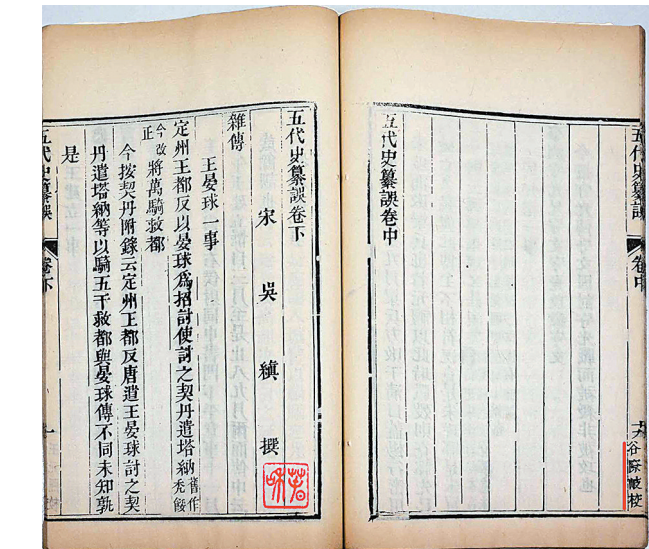 五代史纂誤 卷中
谷際岐校
五代史纂誤卷中
五代史纂誤卷下
宋 吳 縝 撰
雜傳
王晏球一事
定州王都反以晏球爲招討使討之契丹遣塔納舊作禿餒
今改正將萬騎救都
今按契丹附錄云定州王都反唐遣王晏球討之契
丹遣塔納等以騎五千救都與晏球傳不同未知孰
是
五代史纂誤 卷下 一